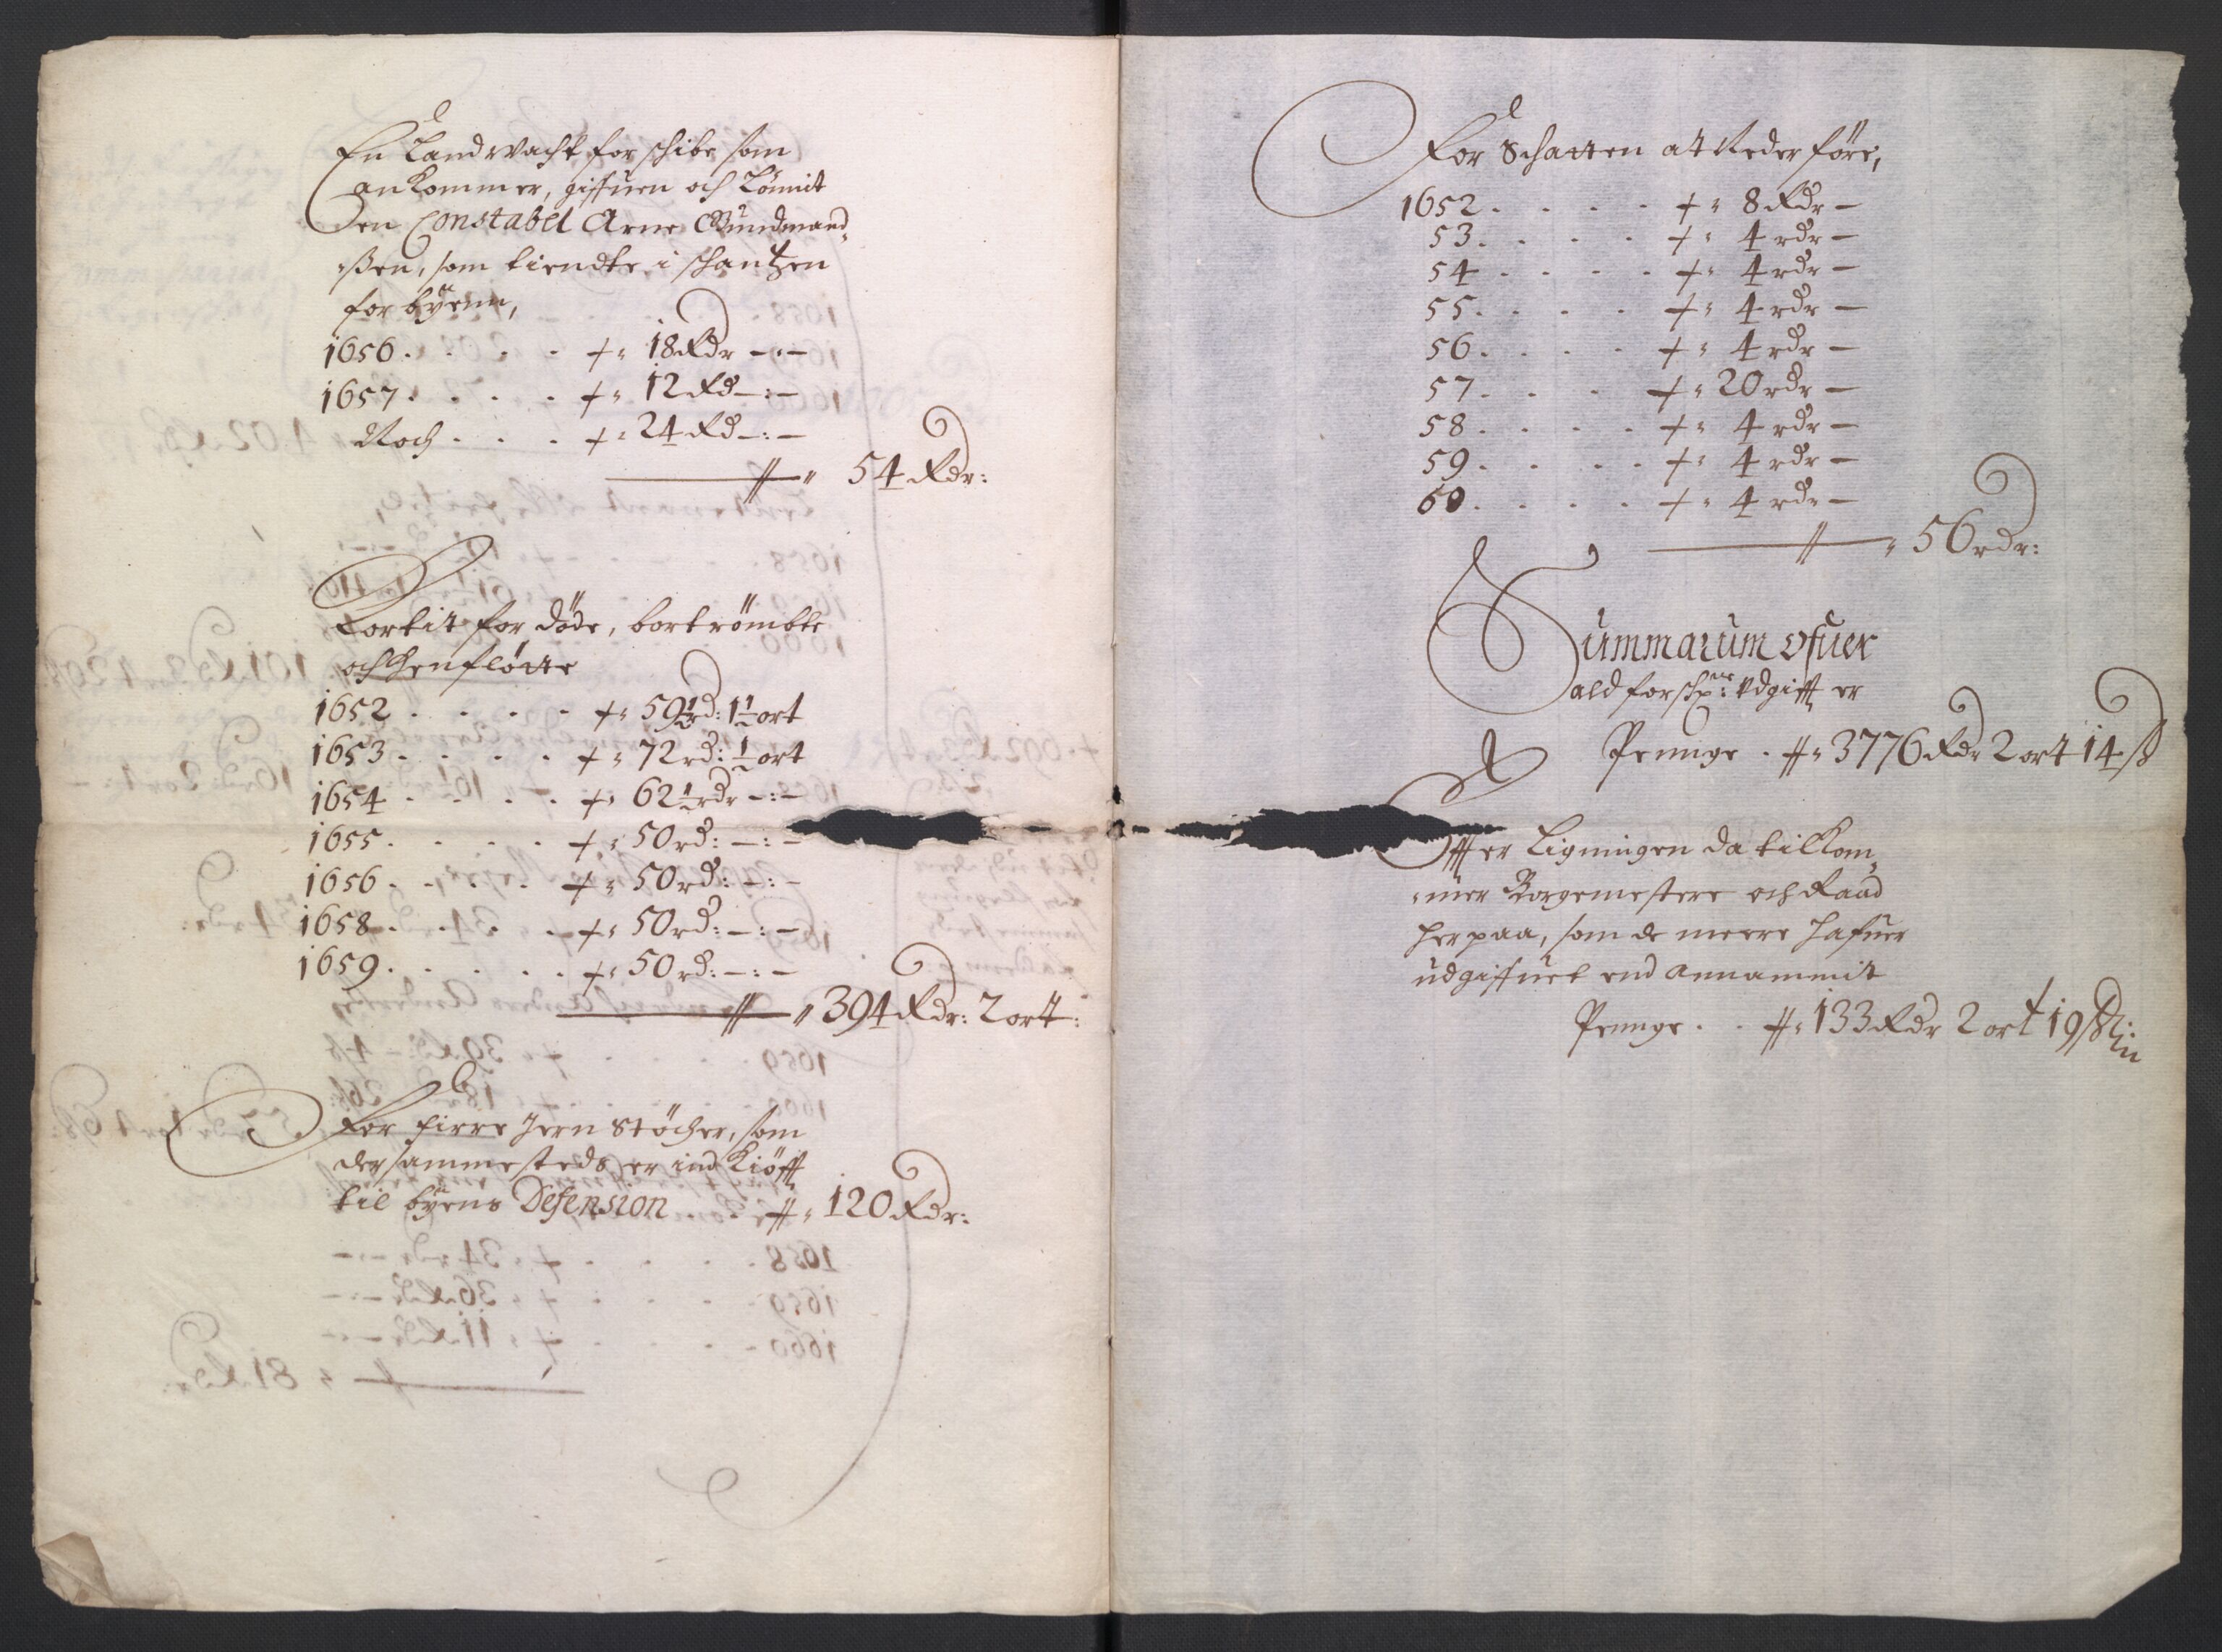 En Landwacht for schibe som
ankommer, giffuen och Lönnit
den Constabel Arne Gundmand-
ßen, som tiendte i schantzen
for byenn,
1656 . . . . 18 Rdr -:-
1657 . . . . 12 Rd -:-
Noch . . . 24 Rd -:-
54 Rdr:
Kortit for döde, bortrömbte
och henflötte
1652 . . . . 59½ rd: 1½ ort
1653 . . . . 72 rd: ½ ort
1654 . . . . 62½ rdr -:-
1655 . . . . 50 rd: -:-
1656 . . . . 50 rd: -:-
1658 . . . . 50 rd: -:-
1659 . . . . . 50 rd: -:-
394 Rdr: 2 ort:
For firre Jern Stöcher, som
der sammesteds er ind Kiöfft
til byens Defension . . 120 Rdr:
For Schatten at Neder före,
1652 . . . . 8 Rdr -
53 . . . . 4 rdr -
54 . . . . 4 rdr -
55 . . . . 4 rdr -
56 . . . . 4 rdr -
57 . . . 20 rdr -
58 . . . . 4 rdr -
59 . . . . 4 rdr -
60 . . . . 4 rdr -
56 rdr:
Summarum ofuer
ald forschr: Vdgifft er
Penge . 3776 Rdr 2 ort 14 ß
Effter Ligningen da tilkom-
mer Borgemestere och Raad
her paa, som de meere hafuer
udgiffuet end annammit
Penge . . 133 Rdr 2 ort 19 ß